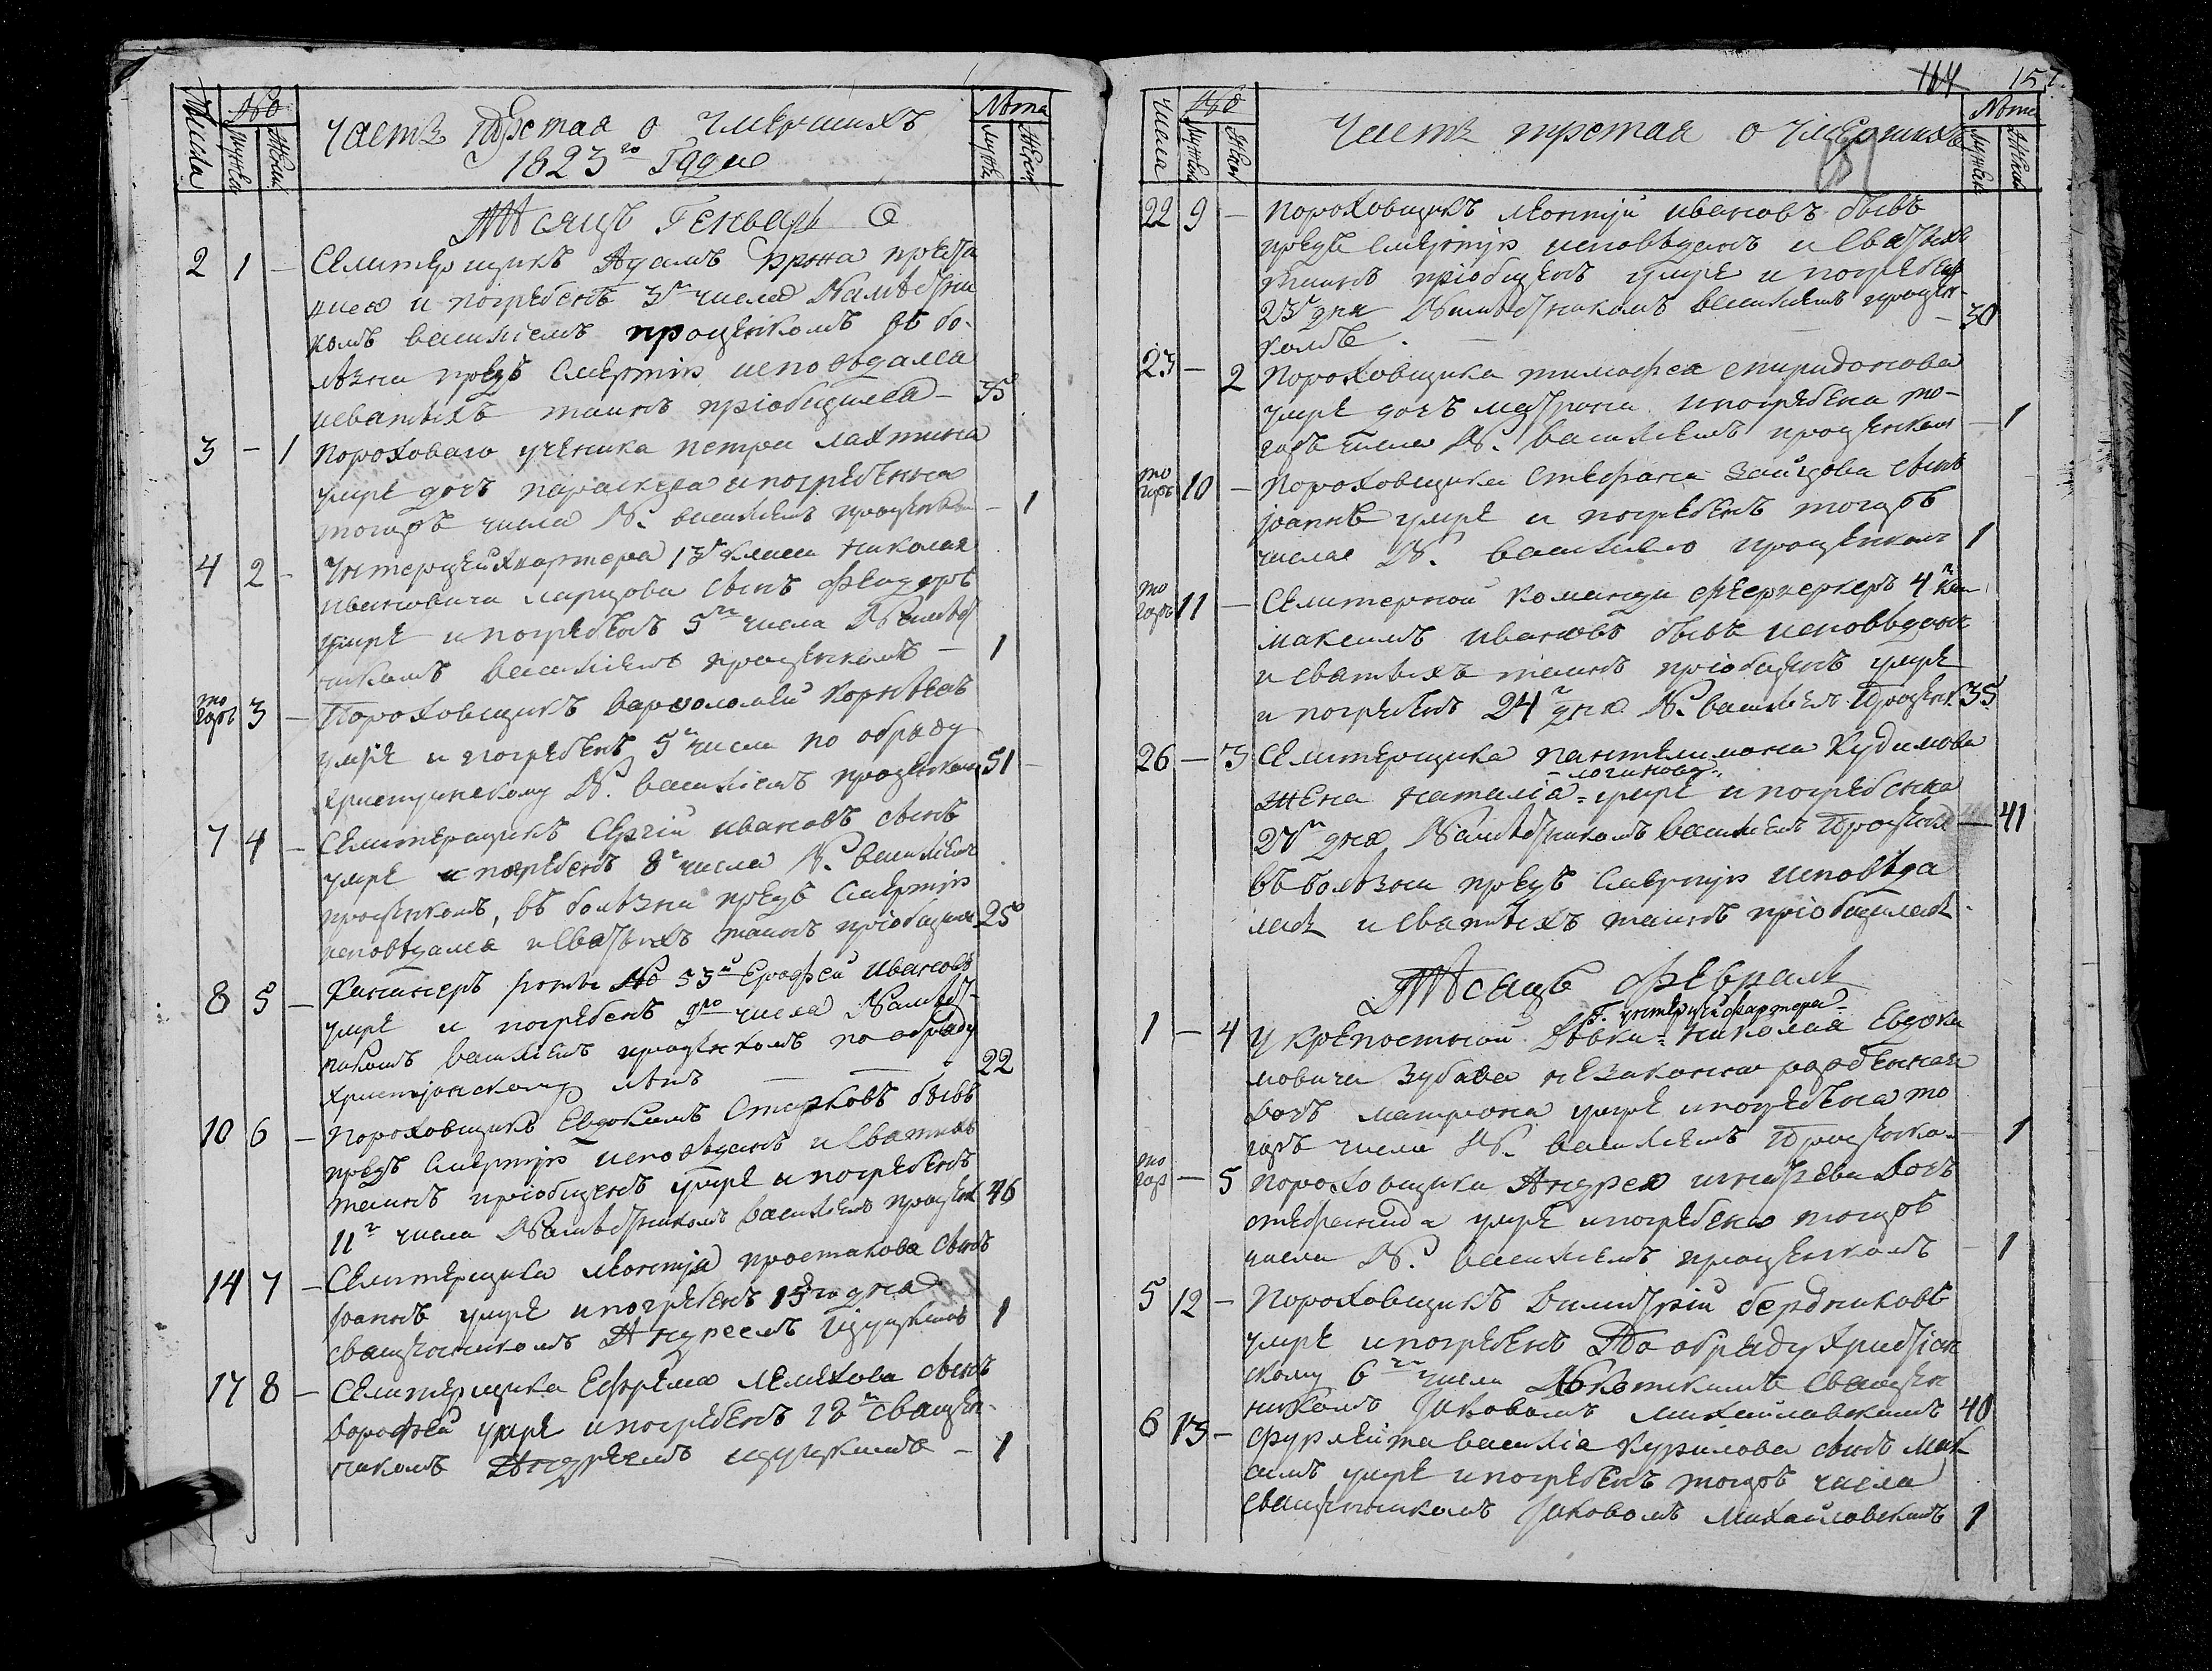 Числа
№
Мужеск
Женск
Часть Третая о умершихъ
1823го Года
Лѣта
Мужеск
Женск
Мсяцъ Генварь
2 1 – Селитерщикъ Адамъ преста
вися и погребенъ 3го числа Намѣстни
комъ василіемъ проценкомъ въ бо-
лѣзни предъ смертію исповѣдался
исватыхъ таинъ пріобщился – 35
3 – 1 Пороховаго ученика петра лахтина
умре дочь параскева ипогребенна
тогожъ числа Н. василіемъ проценкомъ – 1
4 2 – Унтерцейхвартера 13го класа николая
ивановича сынъ феодоръ
умре и погребенъ 5го числа Намѣст
никомъ василіемъ проценкомъ – 1
то
гожъ 3 – Пороховщикъ варфоломей корнѣевъ
умре и погребенъ 5го числа по обряду
христіянскому Н. василіемъ проценкомъ 51 –
7 4 – Селитерщикъ Сергій ивановъ сынъ
умре и погребенъ 8го числа Н. василіемъ
проценкомъ, въ болѣзни предъ смертію
исповѣдался исватыхъ таинъ пріобщился 25
8 5 – Канонеръ роты № 53й Ерофей ивановъ
умре и погребенъ 9го числа Намѣст-
никомъ василіемъ проценкомъ по обряду
христіянскому лѣтъ — — 22
10 6 – Пороховщикъ Евдокимъ Старковъ бывъ
предъ смертію исповѣданъ исватыхъ
таинъ пріобщенъ умре ипогребенъ
11го числа Намѣстникомъ василіемъ проценк 46
14 7 – Селитерщика леонтія простакова сынъ
іоаннъ умре ипогребенъ 15го дня
священникомъ Андреемъ 1
17 8 – Селитерщика Ефрема сынъ
дорофей умре ипогребенъ 18го священ-
никомъ Андреемъ – 1
157
Числа
№
Мужеск
Женск
Часть третая о умершихъ
Лѣта
Мужеск
Женск
22 9 – Пороховщикъ леонтій ивановъ бывъ
предъ смертію исповѣданъ и сватыхъ
таинъ пріобщенъ умре и погребенъ
23го дня Намѣстникомъ василіемъ процен-
комъ. — – 30
23 – 2 Пороховщика тимофея спиридонова
умре дочь матрона ипогребена то-
гожъ числа Н. василіемъ проценкомъ – 1
то
гожъ 10 – Пороховщика Стефана зайцова сынъ
іоаннъ умре и погребенъ тогожъ
числа Н. василіемъ проценкомъ 1
то
гожъ 11 – Селитерной команди феерверкеръ 4го кл
максимъ ивановъ бывъ исповѣданъ
и сватыхъ таинъ пріобщенъ умре
и погребенъ 24го дня Н. василіемъ Проценк 35
26 – 3 Селитерщика пантелимона Кудимова
- логинова -
жена наталіа = умре и погребенна
27го дня Намѣстникомъ василіемъ Проценк – 41
въ болѣзни предъ смертію исповѣда
лась и сватыхъ таинъ пріобщилась.
Мсяцъ февраль
Г. унтерцейхвартера
1 – 4 У крепостной дѣвки = николая Евдоки
мовича Зубова незаконно рожденная
дочь матрона умре ипогребена то
гожъ числа Н. василіемъ Проценком – 1
то
гож – 5 Пороховщика Андрея дочь
стефанида умре ипогребена тогожъ
числа Н. василіемъ проценкомъ – 1
5 12 – Пороховщикъ димитрій бердниковъ
умре ипогребенъ По обряду христіан
скому 6го числа священ
никомъ Іаковомъ михайловскимъ 40
6 13 – фурлейта василіа курилова сынъ мак
симъ умре ипогребенъ тогожъ числа
священникомъ Іаковомъ михайловскимъ 1